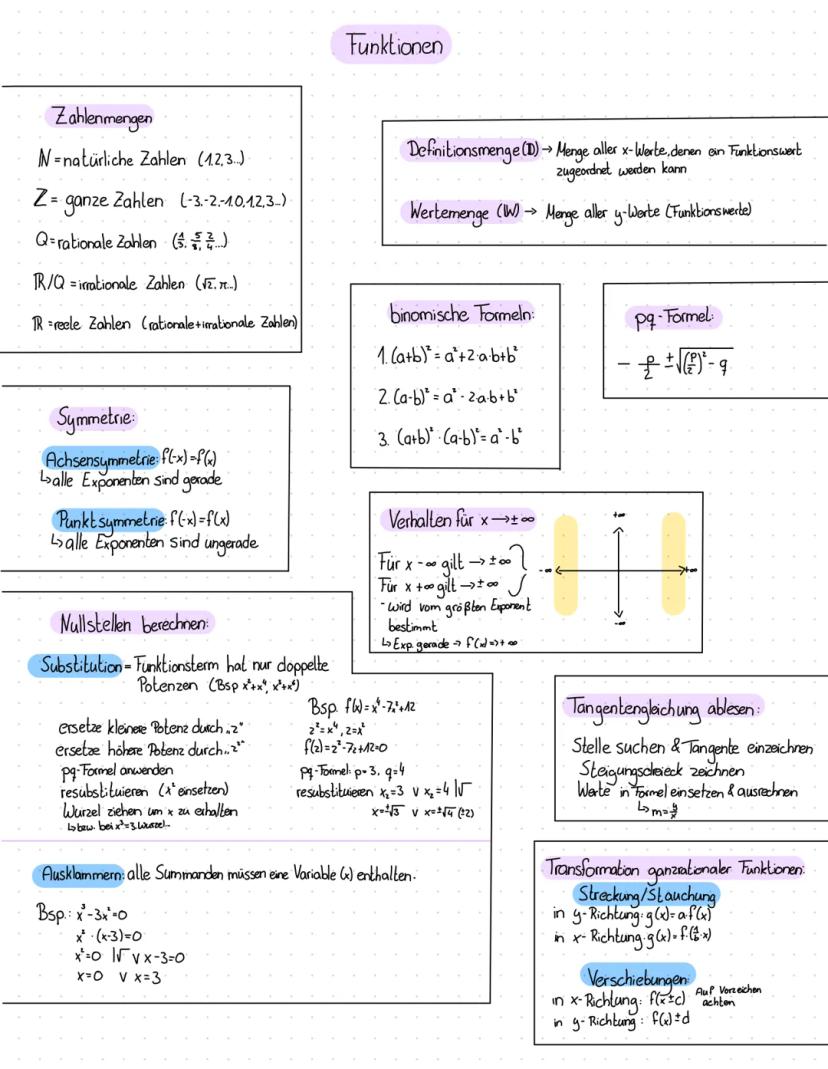 Funktionen
Zahlenmengen
N = natürliche Zahlen (1,2,3...)
Z = ganze Zahlen (-3,-2,-1,0,1,2,3...)
Q = rationale Zahlen
R/Q = irrationale Zahlen (√2, π...)
R = reele Zahlen (rationale + irrationale Zahlen)
Definitionsmenge (D) → Menge aller x-Werte, denen ein Funktionswert
zugeordnet werden kann
Wertemenge (W) → Menge aller y-Werte (Funktionswerte)
binomische Formeln:
1. (a+b)² = a²+2·a·b+b²
2. (a-b)² = a²-2·a·b+b²
3. (a+b)² · (a-b)² = a²-b²
pq-Formel:
- p/2 ± √((p/2)² - q
Symmetrie:
Achsensymmetrie: f(-x) = f(x)
↳ alle Exponenten sind gerade
Punktsymmetrie: f(-x) = f(x)
↳ alle Exponenten sind ungerade
Verhalten für x → ± ∞
Für x -∞ gilt → ± ∞
Für x +∞ gilt → ± ∞
- wird vom größten Exponent
bestimmt
↳ Exp. gerade → f(x) => + ∞
+∞
-∞ +∞
-∞
Nullstellen berechnen:
Substitution = Funktionsterm hat nur doppelte
Potenzen
ersetze kleinere Potenz durch „z“
ersetze höhere Potenz durch „z²“
pq-Formel anwenden
resubstituieren (x² einsetzen)
Wurzel ziehen um x zu erhalten
↳ bzw. bei x³ = 3. Wurzel...
Bsp. f(x) = x⁴-7x²+12
z² = x⁴, z = x²
f(z) = z²-7z+12=0
pq-Formel: p=3, q=4
resubstituieren x₂=3 v x₂=4 |√
x=±√3 v x=±√4 (±2)
Ausklammern: alle Summanden müssen eine Variable (x) enthalten.
Bsp.: x³-3x²=0
x² · (x-3)=0
x²=0 |√ v x-3=0
x=0 v x=3
Tangentengleichung ablesen:
Stelle suchen & Tangente einzeichnen
Steigungsdreieck zeichnen
Werte in Formel einsetzen & ausrechnen
↳ m = y/x
Transformation ganzrationaler Funktionen:
Streckung/Stauchung
in y-Richtung: g(x) = a·f(x)
in x-Richtung: g(x) = f·(1/b·x)
Verschiebungen
in x-Richtung: f(x±c) Auf Vorzeichen
achten
in y-Richtung: f(x) ± d